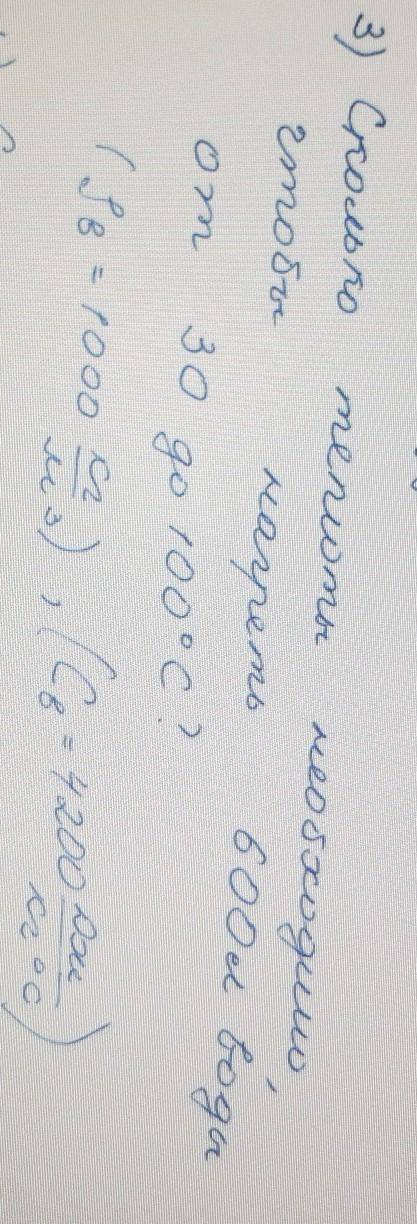 3) Сколько теплоты необходимо,
чтобы нагреть 600л воды
от 30 до 100°С,
(ρв = 1000 кг/м3), (Св = 4200 Дж/кг°С)